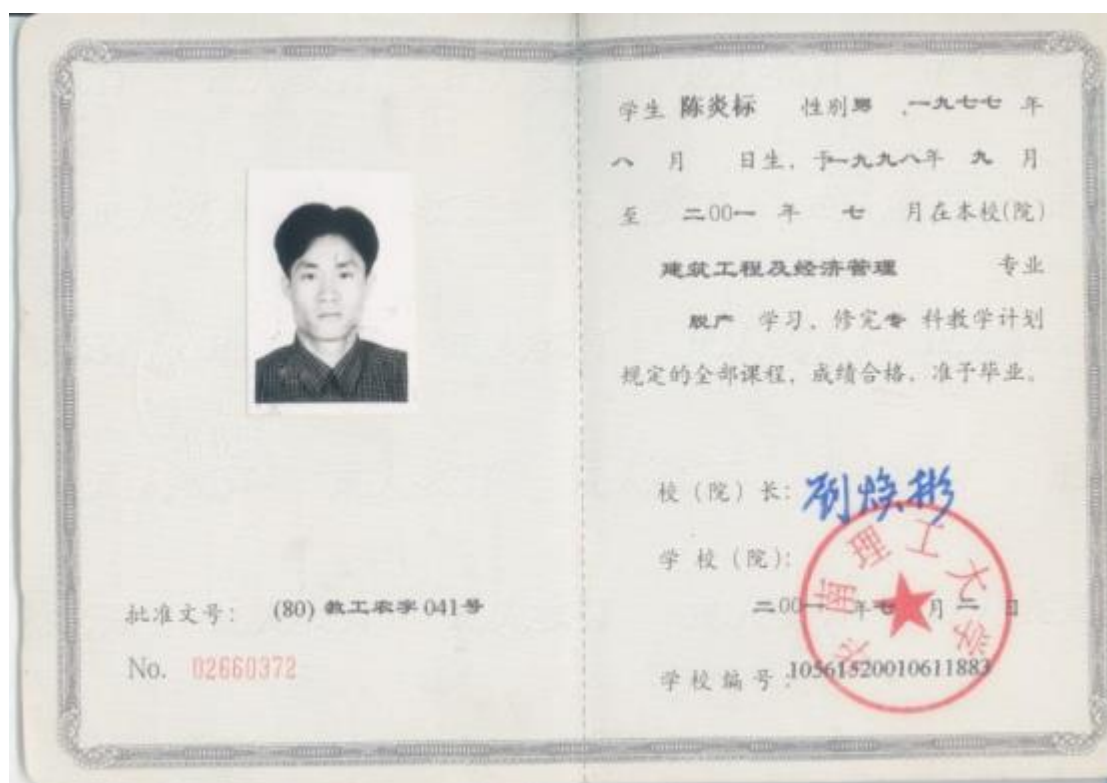 批准文号: (80) 教工农字 041号
No. 02660372
学生 陈炎标 性别男 ,一九七七 年
八 月 日生, 于一九九八年 九 月
至 二00一 年 七 月在本校(院)
建筑工程及经济管理 专业
脱产 学习, 修完专 科教学计划
规定的全部课程, 成绩合格, 准予毕业。
校 (院) 长: 刘焕彬
学 校 (院):
华南理工大学
二00一 年七 月 二 日
学 校 编 号 :10561520010611883